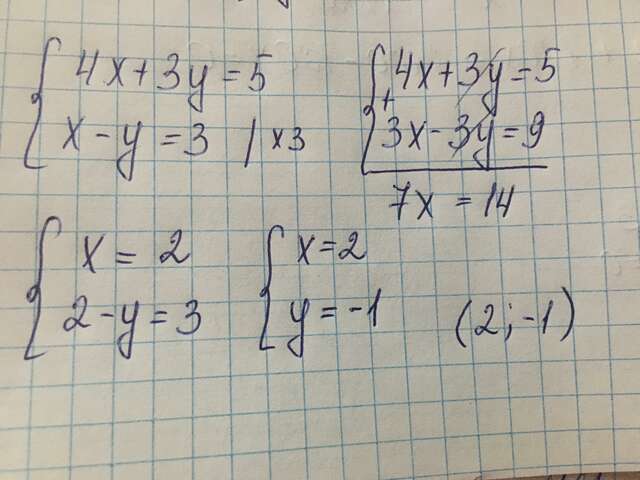 4x+3y=5
x-y=3 | ×3
4x+3y=5
+
3x-3y=9
7x=14
x=2
2-y=3
x=2
y=-1
(2;-1)